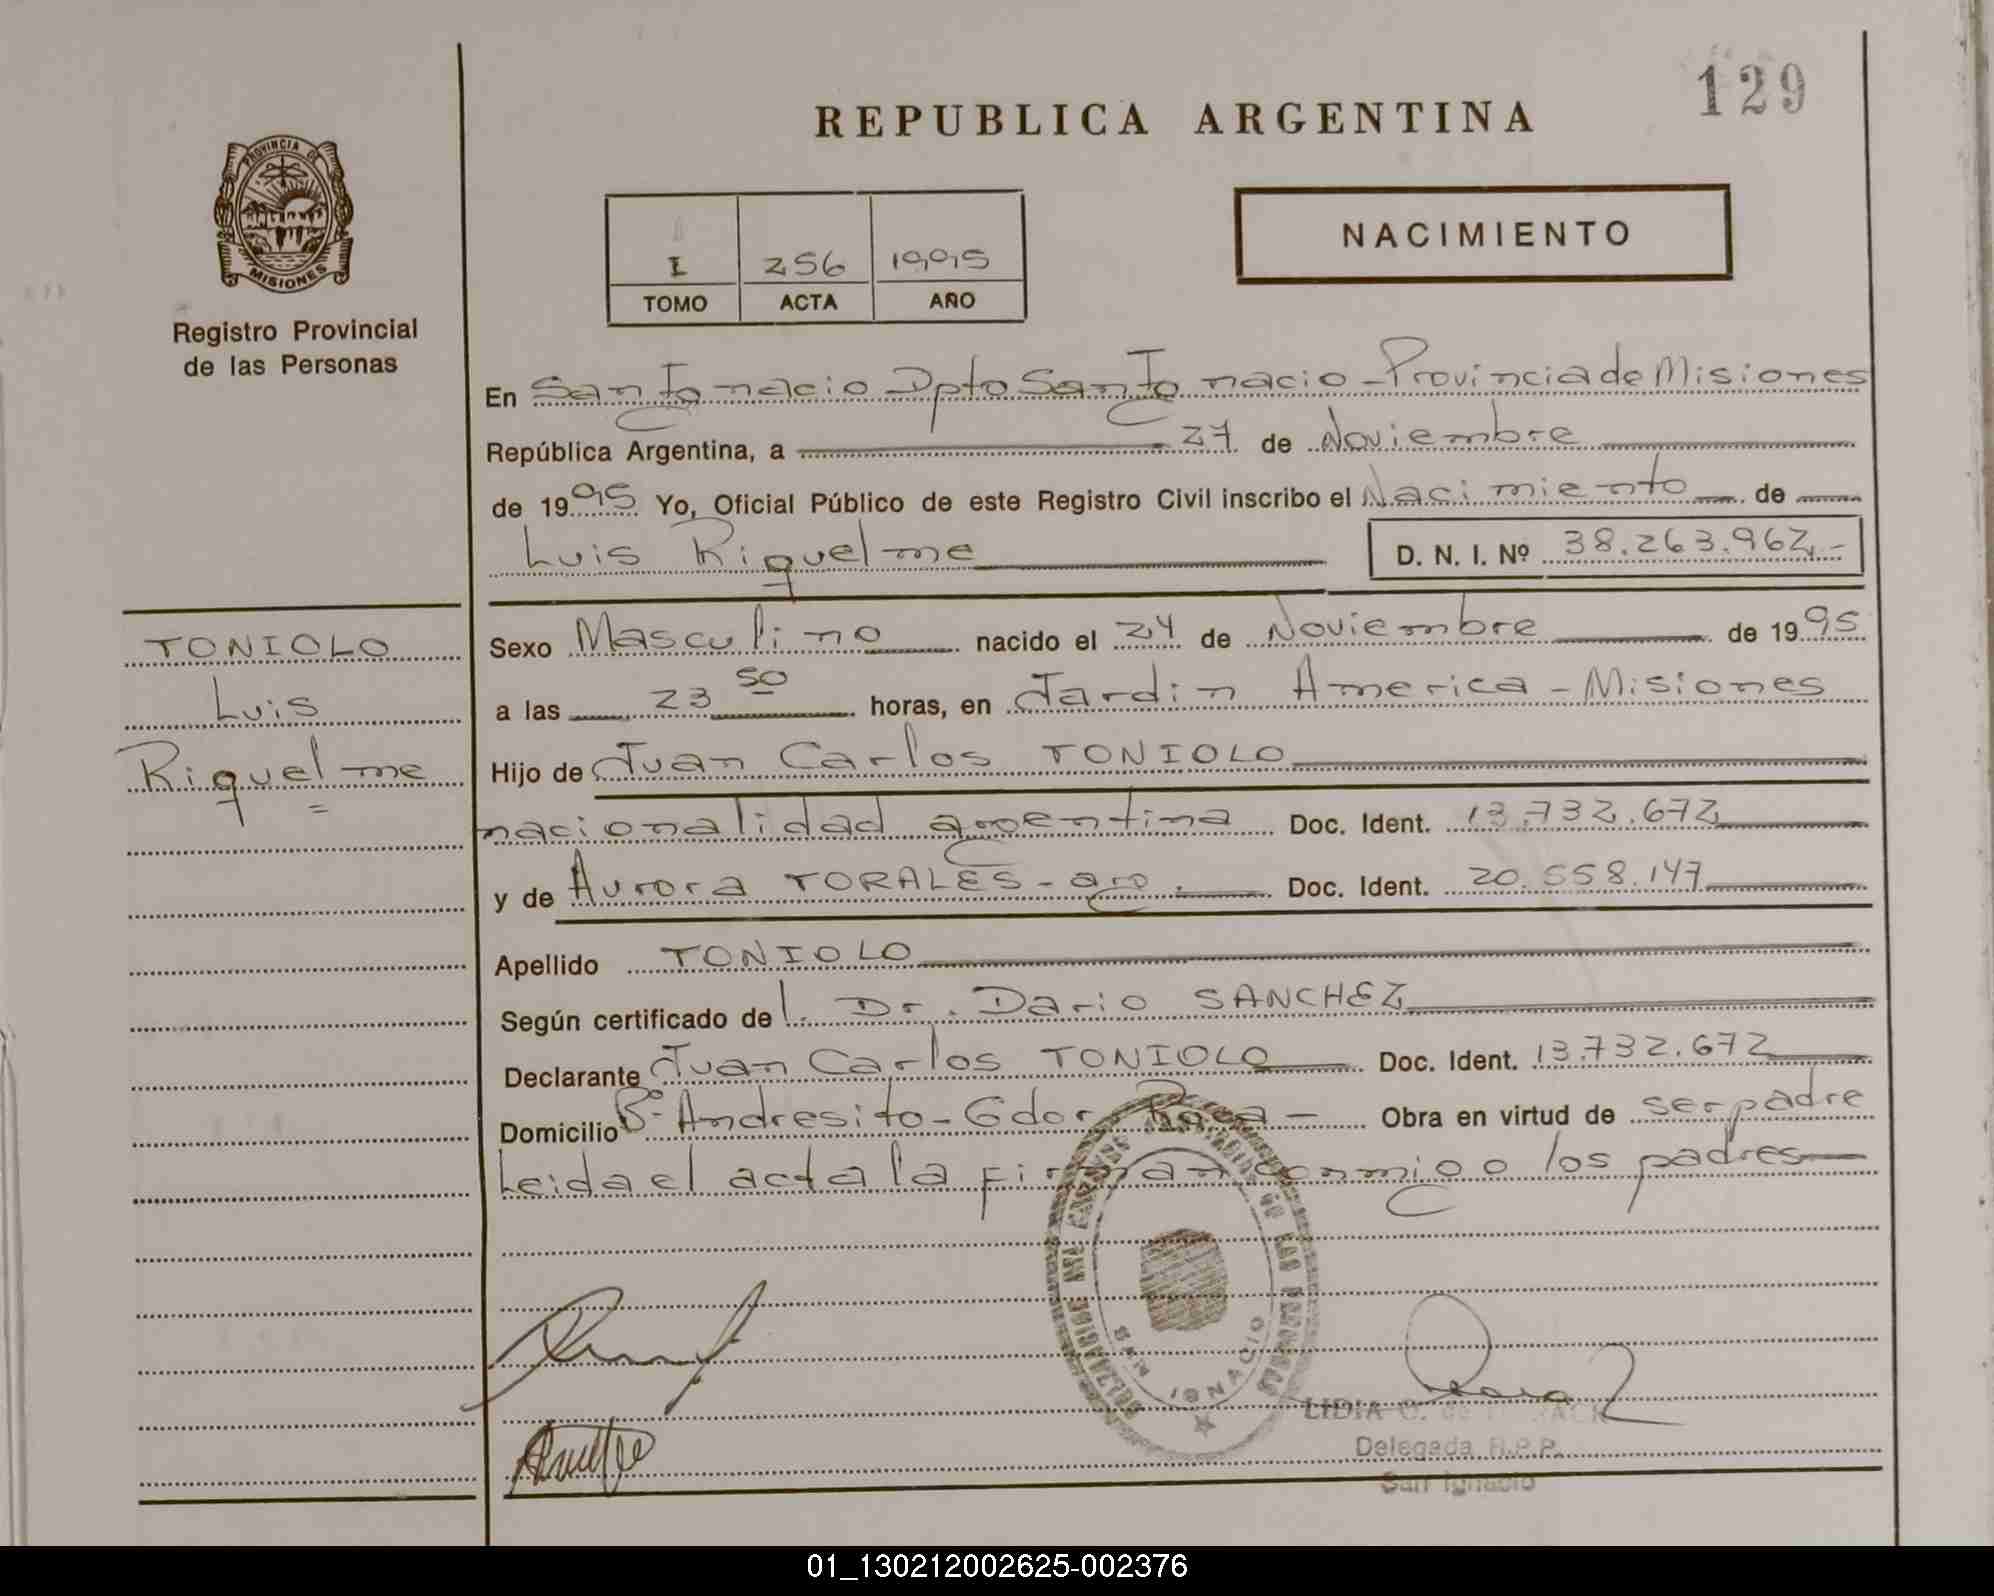 129
REPUBLICA ARGENTINA
PROVINCIA DE
MISIONES
Registro Provincial
de las Personas
I 256 1995
TOMO ACTA AÑO
NACIMIENTO
En San Ignacio Dpto San Ignacio - Provincia de Misiones
República Argentina, a 27 de Noviembre
de 1995 Yo, Oficial Público de este Registro Civil inscribo el Nacimiento de
Luis Riquelme D. N. I. Nº 38.263.962.-
TONIOLO
Luis
Riquelme
Sexo Masculino nacido el 24 de Noviembre de 1995
a las 23 50 horas, en Jardin America - Misiones
Hijo de Juan Carlos TONIOLO
nacionalidad argentina Doc. Ident. 13.732.672
y de Aurora TORALES - arg. Doc. Ident. 20.558.147
Apellido TONIOLO
Según certificado de l. Dr. Dario SANCHEZ
Declarante Juan Carlos TONIOLO Doc. Ident. 13.732.672
Domicilio Bº Andresito - Gdor Roca - Obra en virtud de ser padre
Leida el acta la firman conmigo los padres
SAN IGNACIO
LIDIA
Delegada R.P.P.
San Ignacio
01_130212002625-002376